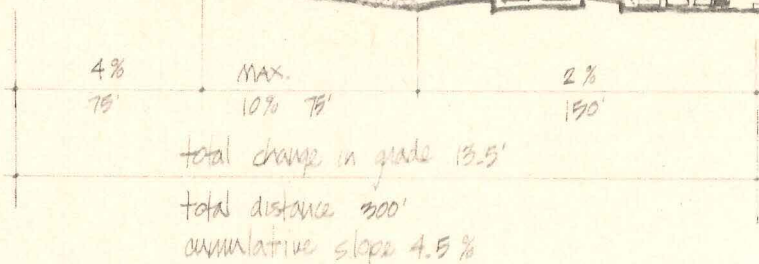 4% MAX. 2%
75' 10% 75' 150'
total change in grade 13.5'
total distance 300'
cumulative slope 4.5%